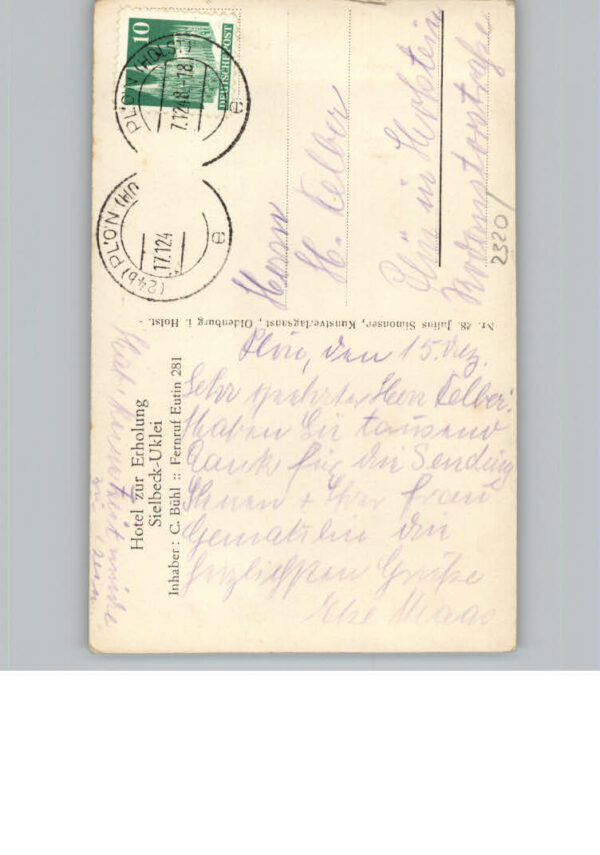 Hotel zur Erholung
Sielbeck-Uklei
Inhaber : C. Bühl :: Fernruf Eutin 281
Nr. 28. Julius Simonsen, Kunstverlagsanst., Oldenburg i. Holst. -
10
DEUTSCHE POST
PLÖN (HOLST)
17.12.48.-18
e
(24b) PLÖN (HO
17.12.4
e
Herrn
H. Kelber
Plön in Holstein
Rodomstorstraße
2320/
Plön, den 15. Dez.
Sehr geehrter Herr Kelber.
Haben Sie tausend
Dank für die Sendung
Ihnen + Ihrer Frau
Gemahlin die
herzlichsten Grüße
Else Maas